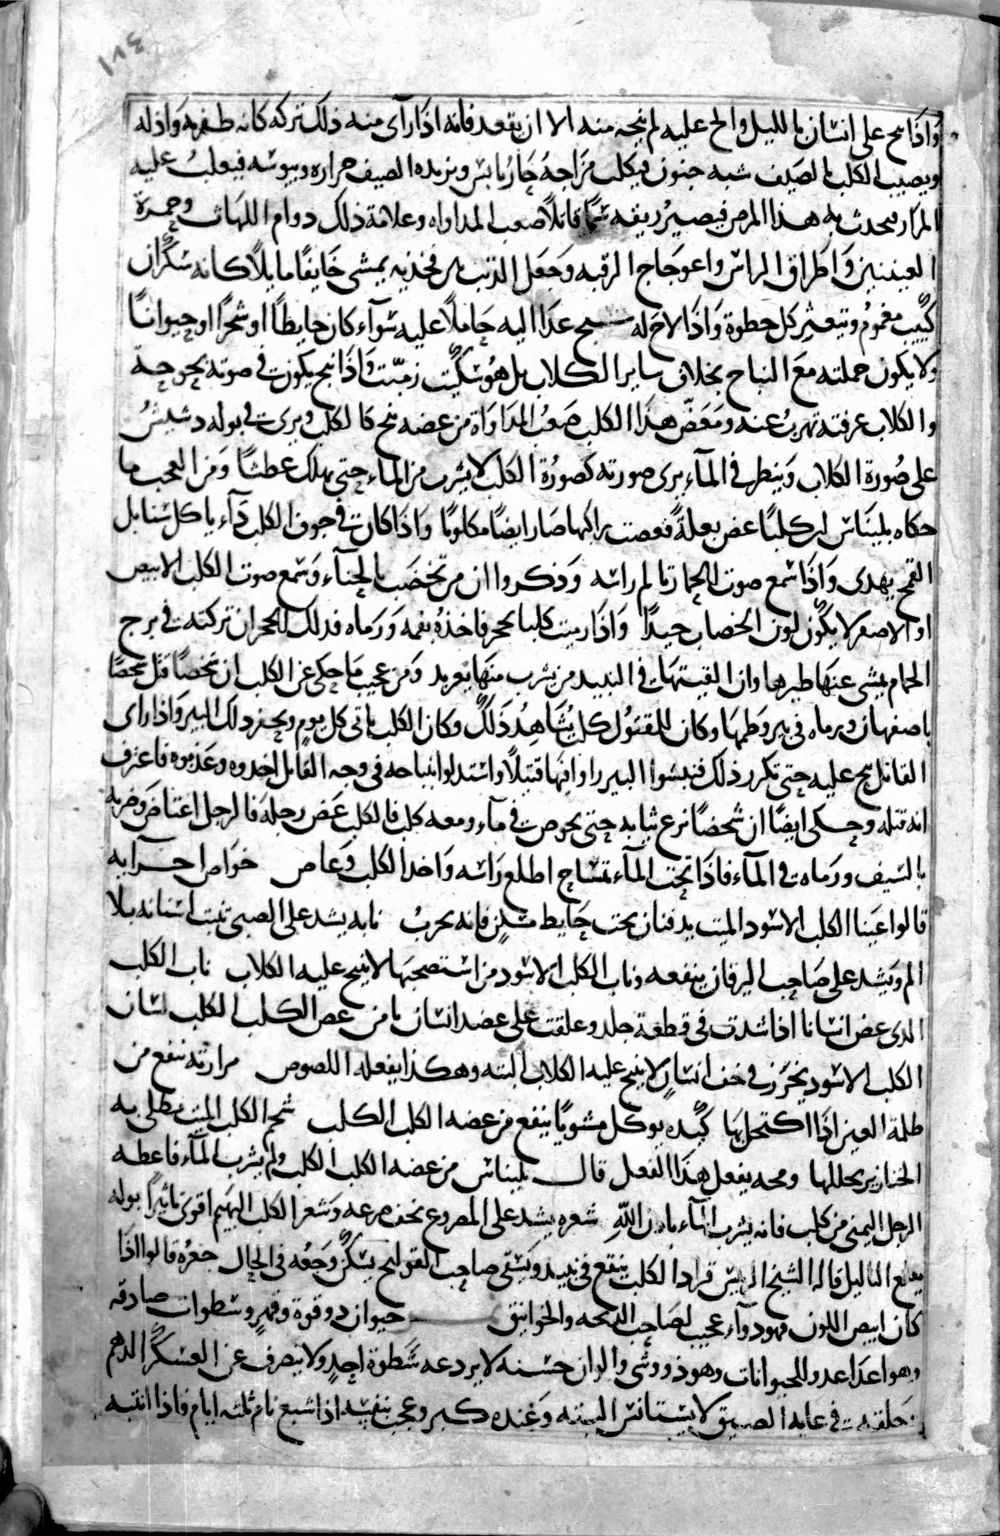 ١٨٤
واذا نبح على انسان بالليل والح عليه لم ينجه منه الا ان يقعد فانه اذا رآى منه ذلك تركه كانه ظفر به واذله
ويصيب الكلب بالصيف شبه جنون فيكلب مزاجه حار يابس ويزيده الصيف حرارة ويبوسه فيغلب عليه
المرار فيحدث به هذا المرض فيصير ريقه سما قاتلا صعب المداواه وعلامة ذلك دوام اللهاث وحمرة
العينين واطراق الراس واعوجاج الرقبه وجعل الذنب بين فخذيه يمشي خايفا مايلا كانه سكران
كييب مغموم ويتعثر كل خطوة واذا لاح له شبح عدا اليه حاملا عليه سوآء كان حايطا او شجرا او حيوانا
ولا يكون حملته مع النباح بخلاف ساير الكلاب بل هو سكيت زميت واذا نبح يكون في صوته بحوحة
والكلاب عرفته تهرب عنه ومعض هذا الكلب صعب المداواة من عضه نبح كالكلب ويرى في بوله دشيش
على صورة الكلاب وينظر في المآء يرى صورته كصورة الكلب لا يشرب من المآء حتى يهلك عطشا ومن العجب ما
حكاه بليناس ان كلبا عض بغلة فعضت راكبها صار ايضا مكلوبا واذا كان في جوف الكلب دآء ياكل سنابل
القمح يهدى واذا سمع صوت الحمار تالم راسه وذكروا ان من تخضب بالحنآء وسمع صوت الكلب الابيض
او الاصفر لا يكون لون الخضاب جيدا واذا رميت كلبا بحجر فاخذه بفمه ورماه فذلك الحجر ان تركته في برج
الحمام يمشى عنها طيرها وان القيتها في النبيد من شرب منها يعربد ومن عجيب ما حكى عن الكلب ان شخصا قتل شخصا
باصفهان ورماه في بير وطمها وكان للمقتول كلب شاهد ذلك وكان الكلب ياتى كل يوم ويحفر ذلك البير واذا راى
القاتل نبح عليه حتى تكرر ذلك فنبشوا البير راوا فيها قتيلا واستدلوا بنباحه في وجه القاتل اخذوه وعذبوه فاعترف
انه قتله وحكى ايضا ان شخصا نزع ثيابه حتى يخوض في مآء ومعه كلب فالكلب عض رجله فالرجل اغتاض وضربه
بالسيف ورماه في المآء فاذا تحت المآء تمساح اطلع راسه واخذ الكلب وغاص خواص اجزآيه
قالوا عينا الكلب الاسود الميت يدفنان تحت حايط مدن فانه يخرب نابه يشد على الصبي تنبت اسنانه بلا
الم ويشد على صاحب اليرقان ينفعه وناب الكلب الاسود من استصحبها لا ينبح عليه الكلاب ناب الكلب
الذى عض انسانا اذا شدت في قطعة جلد وعلقت على عضد انسان يامن عض الكلب الكلب لسان
الكلب الاسود يخرز في خف انسان لا ينبح عليه الكلاب البته وهكذا يفعله اللصوص مرارته ينفع من
ظلمة العين اذا اكتحل بها كبده يوكل مشويا ينفع من عضه الكلب الكلب شحم الكلب الميت يطلى به
الخنازير يحللها ومخه يفعل هذا الفعل قال بليناس من عضه الكلب الكلب ولم يشرب المآء فاعطه
الرجل اليمنى من كلب فانه يشرب المآء باذن الله شعره يشد على المصروع يخف صرعه وشعر الكلب البهيم اقوى تاثيرا بوله
يقلع الثاليل قاله الشيخ الرئيس قراد الكلب ينقع في نبيد ويسقى صاحب القولنج يسكن وجعه في الحال جعره قالوا اذا
كان ابيض اللون فهو دوآء عجيب لصاحب الذبحه والخوانيق حيوان ذو قوة وقهر وسطوات صادقه
وهو اعدا عدو للحيوانات وهو ذو وثبى والوان حسنه لا يردعه سطوة احد ولا ينصرف عن العسكر الدهم
خلقه في غاية الضيق لا يستانس البته وعنده كبر وعجب بنفسه اذا شبع نام ثلثه ايام فاذا انتبه